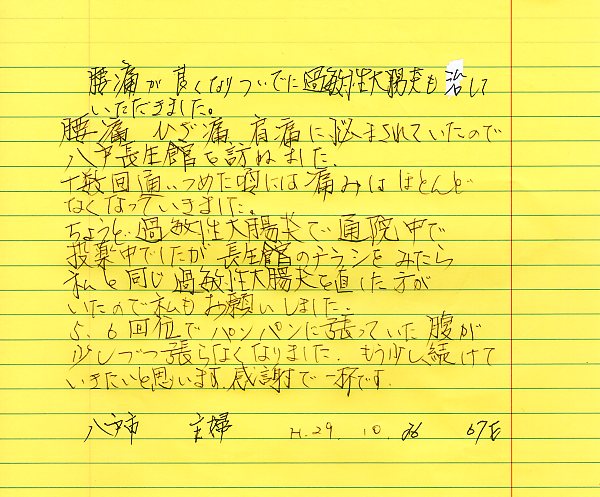 腰痛が良くなりついでに過敏性大腸炎も治して
いただきました。
腰痛 ひざ痛 肩痛に悩まされていたので
八戸長生館を訪ねました。
十数回通いつめた頃には痛みはほとんど
なくなっていきました。
ちょうど過敏性大腸炎で通院中で
投薬中でしたが長生館のチラシをみたら
私と同じ過敏性大腸炎を直した方が
いたので私もお願いしました。
5、6回位でパンパンに張っていた腹が
少しづつ張らなくなりました。もう少し続けて
いきたいと思います。感謝で一杯です。
八戸市 主婦 H.29.10.26 67才